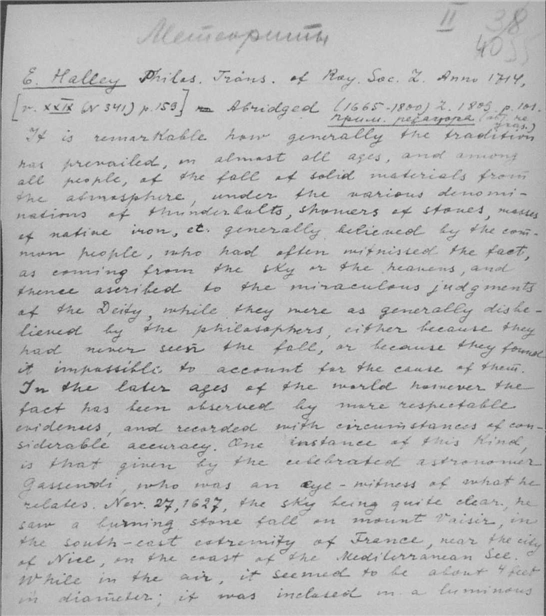 Метеориты
II
38
40
E. Halley Philos. Trans. of Roy. Soc. L. Anno 1714,
[v. XXIX (N 341) p. 159] Abridged (1665-1800) L. 1809, p. 101.
Прим. редактора
It is remarkable how generally the tradition
has prevailed, in almost all ages, and among
all people, of the fall of solid materials from
the atmosphere, under the various denomi-
nations of thunderbolts, showers of stones, masses
of native iron, etc. generally believed by the com-
mon people, who had often witnissed the fact,
as coming from the sky or the heavens, and
thence ascribed to the miraculous judgments
of the Deity, while they were as generally disbe-
lieved by the philosophers, either because they
had never seen the fall, or because they found
it impossible to account for the cause of them.
In the later ages of the world however the
fact has been observed by more respectable
evidences, and recorded with circumstances of con-
siderable accuracy. One instance of this kind,
is that given by the celebrated astronomer
Gassendi, who was an eye-witness of what he
relates. Nov. 27, 1627, the sky being quite clear, he
saw a burning stone fall on mount Vaisir, in
the south-east extremity of France, near the city
of Nice, on the coast of the Mediterranean See.
While in the air, it seemed to be about 4 feet
in diameter; it was inclosed in a luminous